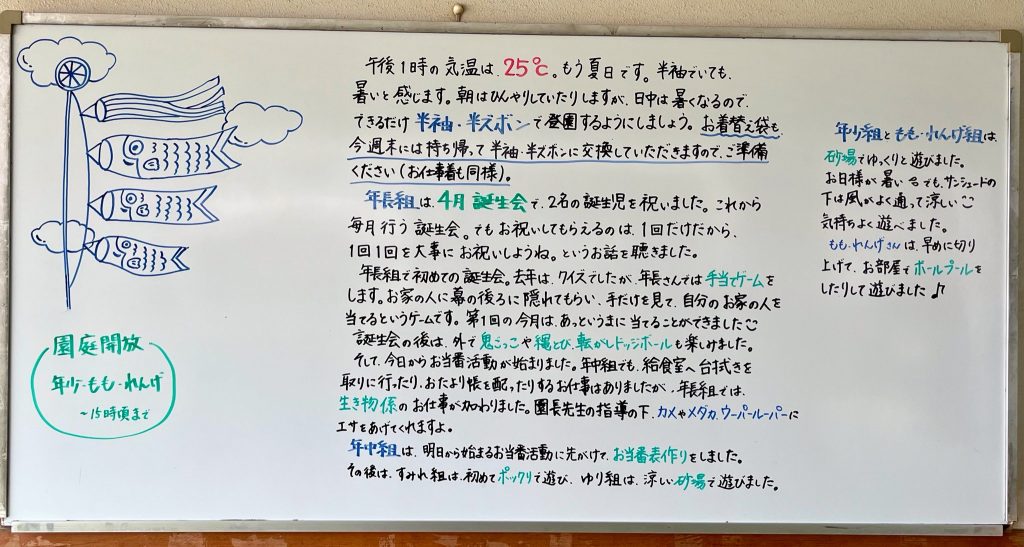 午後1時の気温は、25℃。もう夏日です。半袖でいても、
暑いと感じます。朝はひんやりしていたりしますが、日中は暑くなるので、
できるだけ半袖・半ズボンで登園するようにしましょう。お着替え袋も、
今週末には持ち帰って半袖・半ズボンに交換していただきますので、ご準備
ください(お仕事着も同様)。
年長組は、4月誕生会で、2名の誕生児を祝いました。これから
毎月行う誕生会。でもお祝いしてもらえるのは、1回だけだから、
1回1回を大事にお祝いしようね。というお話を聴きました。
年長組で初めての誕生会。去年は、クイズでしたが、年長さんでは手当てゲームを
します。お家の人に幕の後ろに隠れてもらい、手だけを見て、自分のお家の人を
当てるというゲームです。第1回の今月は、あっというまに当てることができました
誕生会の後は、外で鬼ごっこや縄とび、転がしドッジボールも楽しみました。
そして、今日からお当番活動が始まりました。年中組でも、給食室へ台拭きを
取りに行ったり、おたより帳を配ったりするお仕事はありましたが、年長組では、
生き物係のお仕事が加わりました。園長先生の指導の下、カメやメダカ、ウーパールーパーに
エサをあげてくれますよ。
年中組は、明日から始まるお当番活動に先がけて、お当番表作りをしました。
その後は、すみれ組は、初めてポックリで遊び、ゆり組は、涼しい砂場で遊びました。
年少組ともも・れんげ組は、
砂場でゆっくりと遊びました。
お日様が暑い今日でも、サンシェードの
下は風がよく通って涼しい
気持ちよく遊べました。
もも・れんげさんは、早めに切り
上げて、お部屋でボールプールを
したりして遊びました♪
園庭開放
年少・もも・れんげ
~15時頃まで